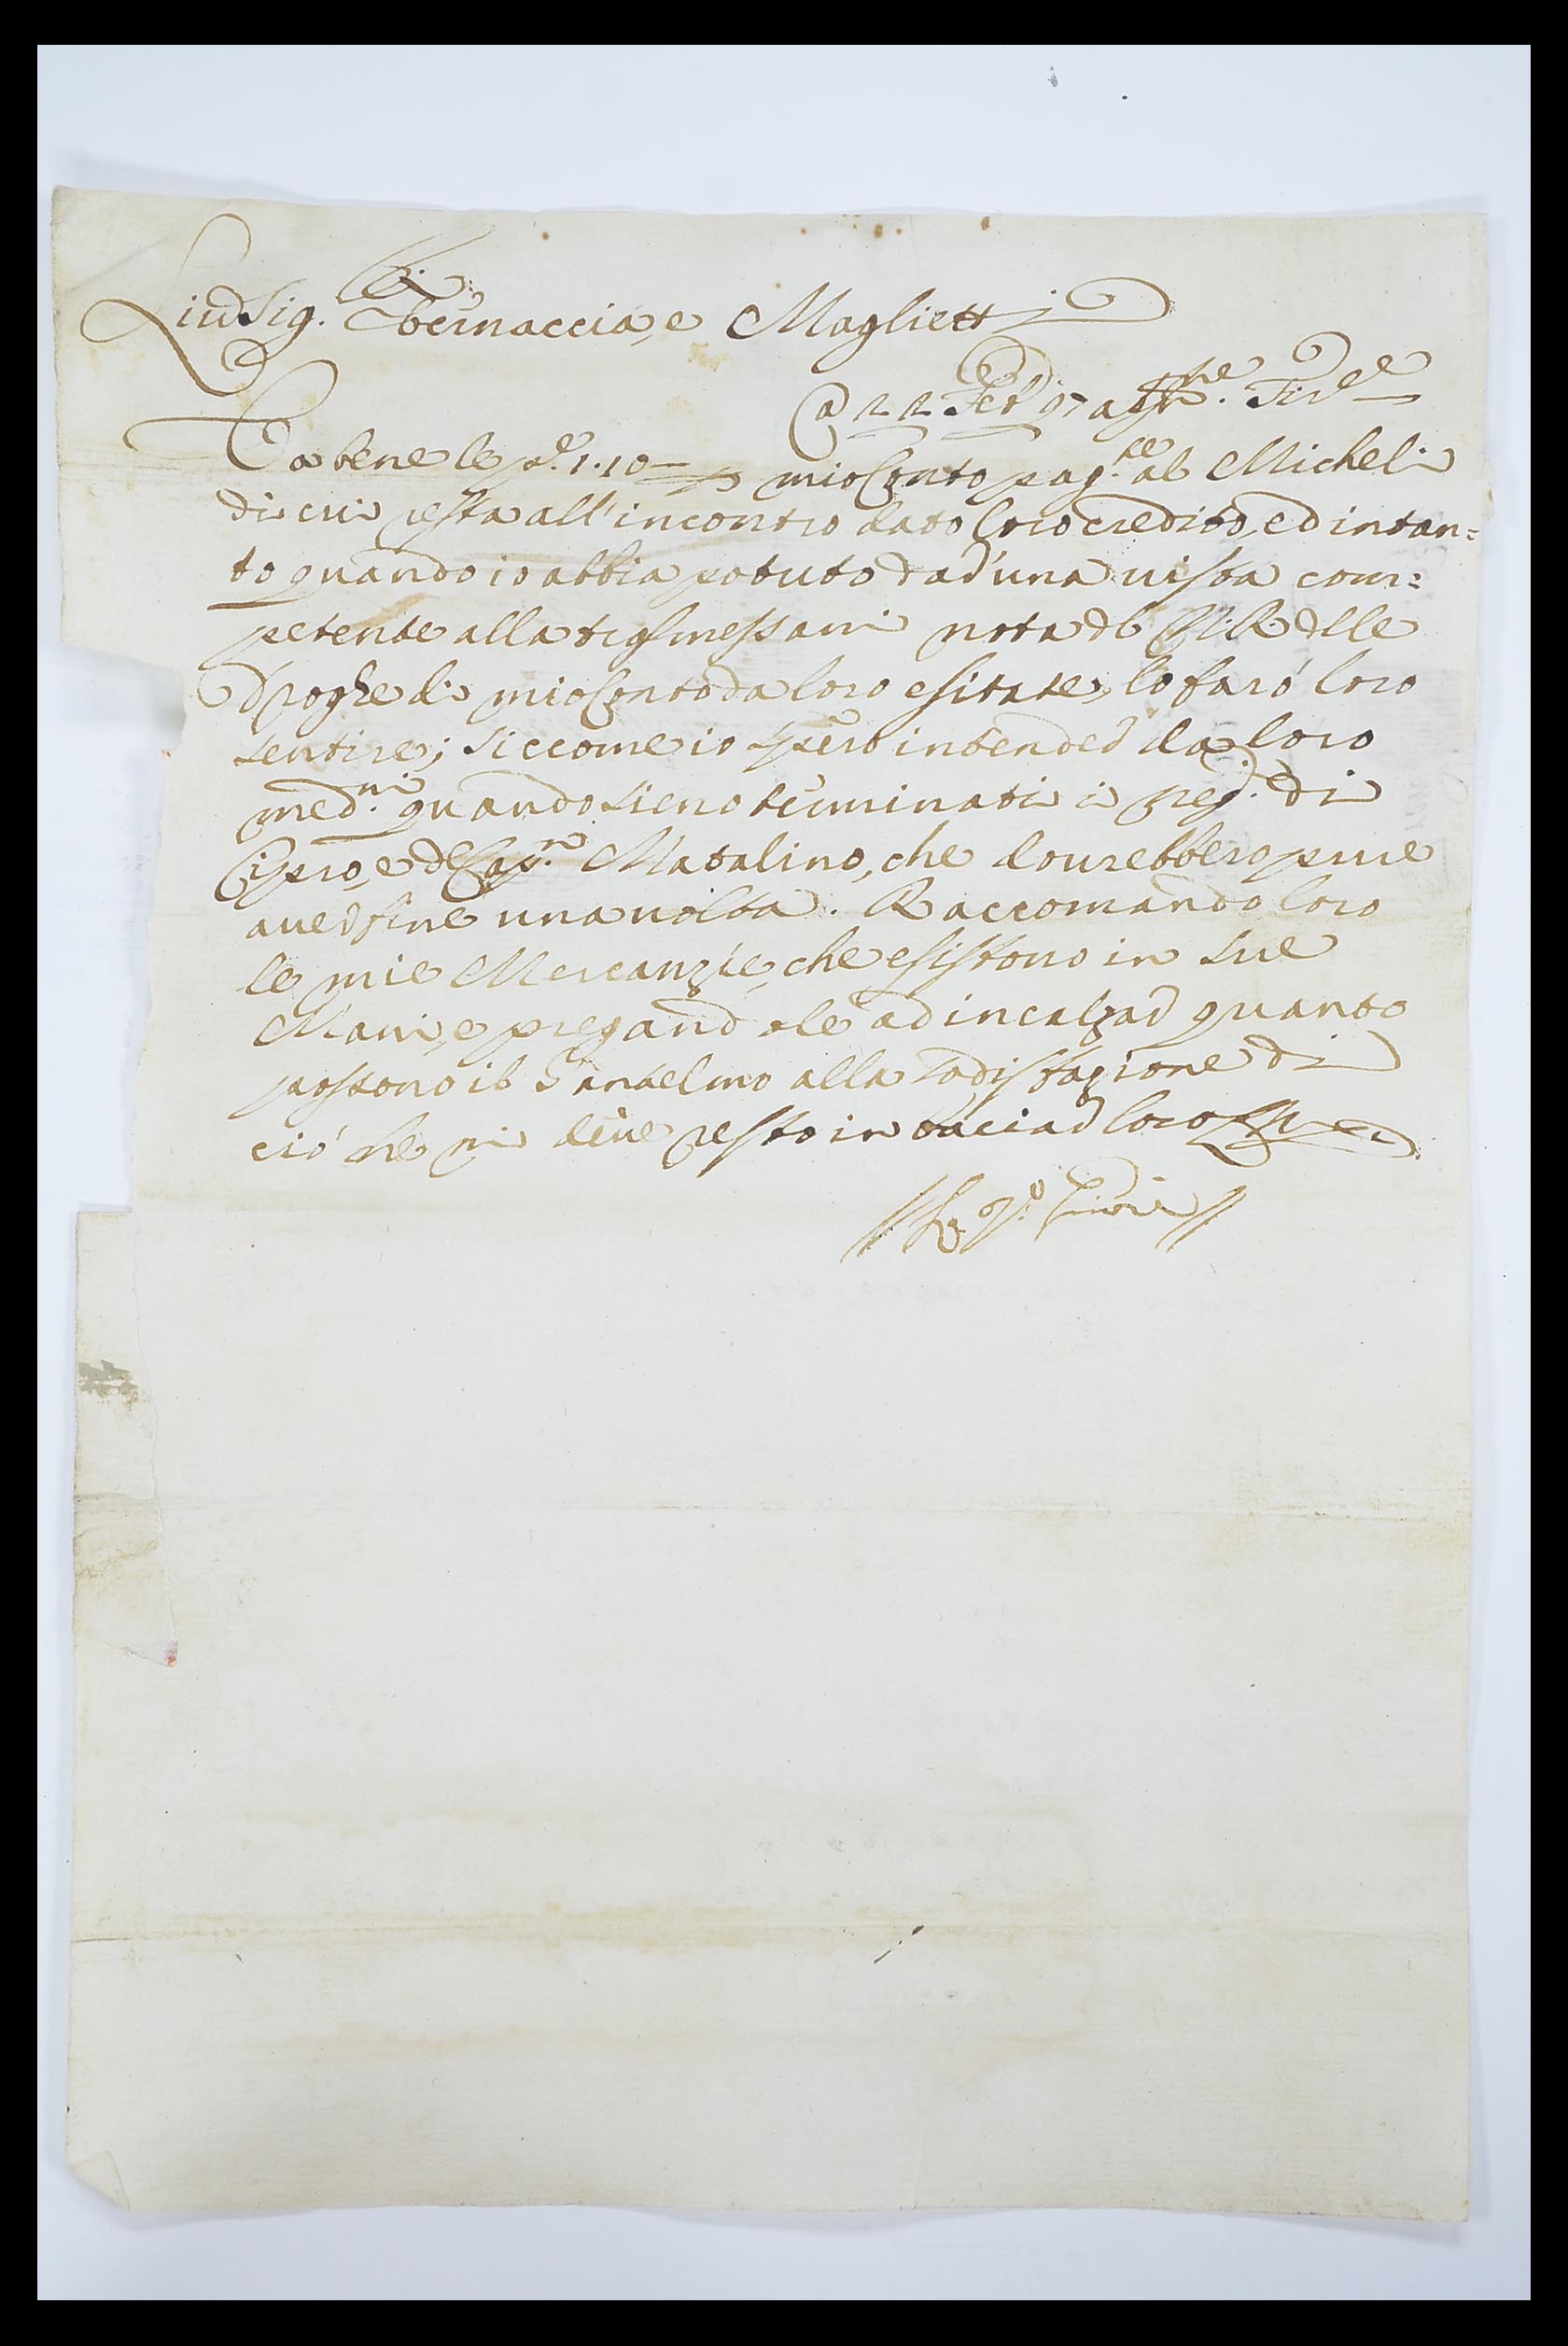 Liu.^r Sig.^ri Vernaccia, e Magliett.i
@ 22 Feb.o 97 ab Inc.ne Fir.ze
Va bene le p.e 1.10 – p mio Conto pag.te al Micheli
di cui resta all'incontro dato loro credito, ed intan=
to quando io abbia potuto dar' una vista com=
petente alla trasmessami nota del N: R delle
droghe di mio Conto da loro esitate, lo farò loro
sentire; siccome io spero intender da loro
med.mi quando sieno terminati i neg.zi di
Cipro, e del Cap.n Matalino, che dovrebbero pure
aver fine una volta. Raccomando loro
le mie Mercanzie, che esistono in sue
Mani, e pregandole ad incalzar quanto
possono il Santelmo alla sodisfazione di
ciò che mi deve resto in baciar loro